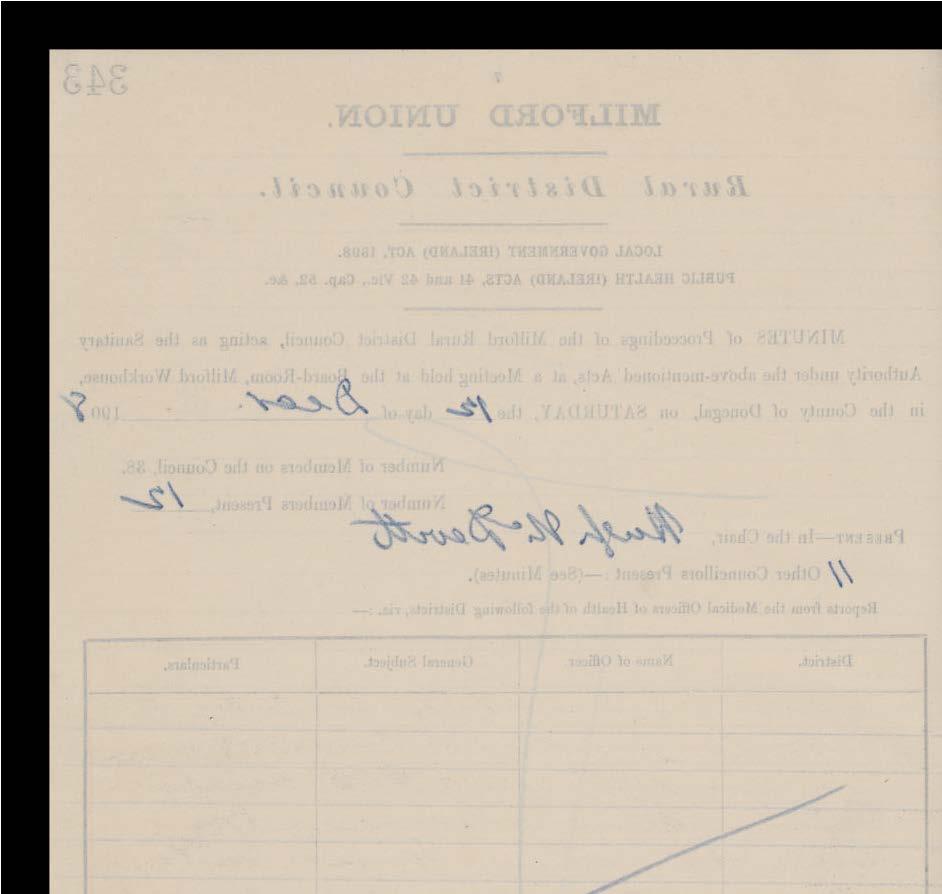 343
7
MILFORD UNION.
Rural District Council.
LOCAL GOVERNMENT (IRELAND) ACT, 1898.
PUBLIC HEALTH (IRELAND) ACTS, 41 and 42 Vic., Cap. 52, &c.
MINUTES of Proceedings of the Milford Rural District Council, acting as the Sanitary
Authority under the above-mentioned Acts, at a Meeting held at the Board-Room, Milford Workhouse,
in the County of Donegal, on SATURDAY, the 12 day of Decr. 1908
Number of Members on the Council, 38.
Number of Members Present, 12
PRESENT—In the Chair, Hugh McDevitt
11 Other Councillors Present:—(See Minutes).
Reports from the Medical Officers of Health of the following Districts, viz. :—
District. Name of Officer General Subject. Particulars.